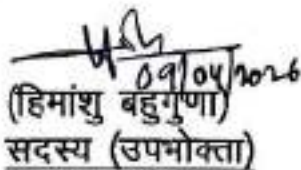 09/04/2026
(हिमांशु बहुगुणा)
सदस्य (उपभोक्ता)